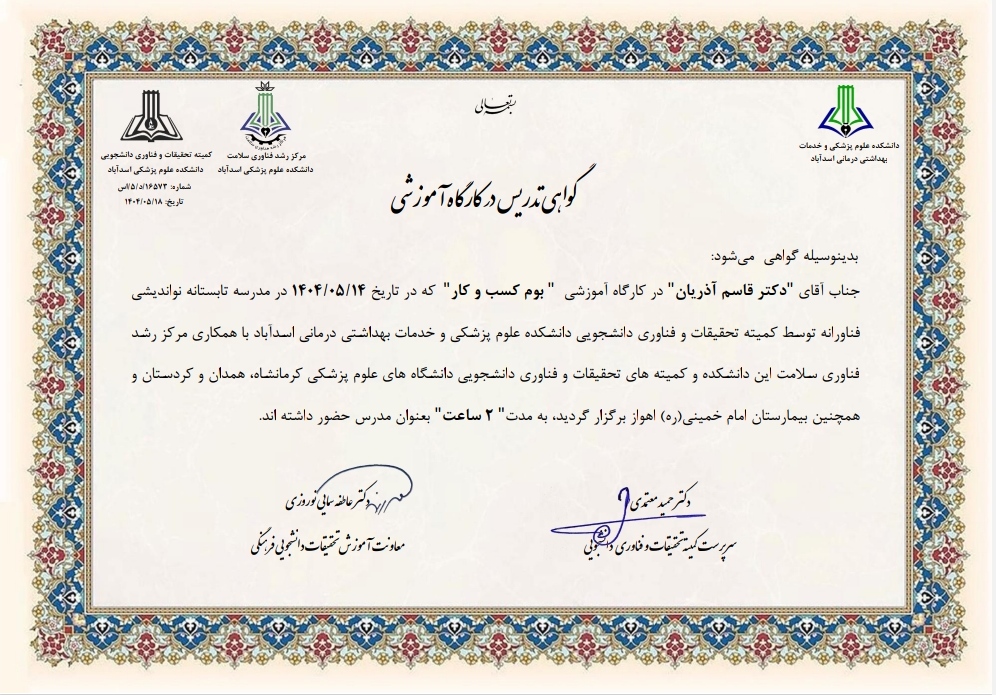 بسمه تعالی
دانشکده علوم پزشکی و خدمات
بهداشتی درمانی اسدآباد
مرکز رشد فناوری سلامت
دانشکده علوم پزشکی اسدآباد
کمیته تحقیقات و فناوری دانشجویی
دانشکده علوم پزشکی اسدآباد
شماره: ۱۶۵۷۳/د/۵/اس
تاریخ: ۱۴۰۴/۰۵/۱۸
گواهی تدریس در کارگاه آموزشی
بدینوسیله گواهی می‌شود:
جناب آقای "دکتر قاسم آذریان" در کارگاه آموزشی " بوم کسب و کار" که در تاریخ ۱۴۰۴/۰۵/۱۴ در مدرسه تابستانه نواندیشی
فناورانه توسط کمیته تحقیقات و فناوری دانشجویی دانشکده علوم پزشکی و خدمات بهداشتی درمانی اسدآباد با همکاری مرکز رشد
فناوری سلامت این دانشکده و کمیته های تحقیقات و فناوری دانشجویی دانشگاه های علوم پزشکی کرمانشاه، همدان و کردستان و
همچنین بیمارستان امام خمینی(ره) اهواز برگزار گردید، به مدت" ۲ ساعت" بعنوان مدرس حضور داشته اند.
دکتر حمید معتمدی
سرپرست کمیته تحقیقات و فناوری دانشجویی
دکتر عاطفه سایی نوروزی
معاونت آموزش تحقیقات دانشجویی فرهنگی